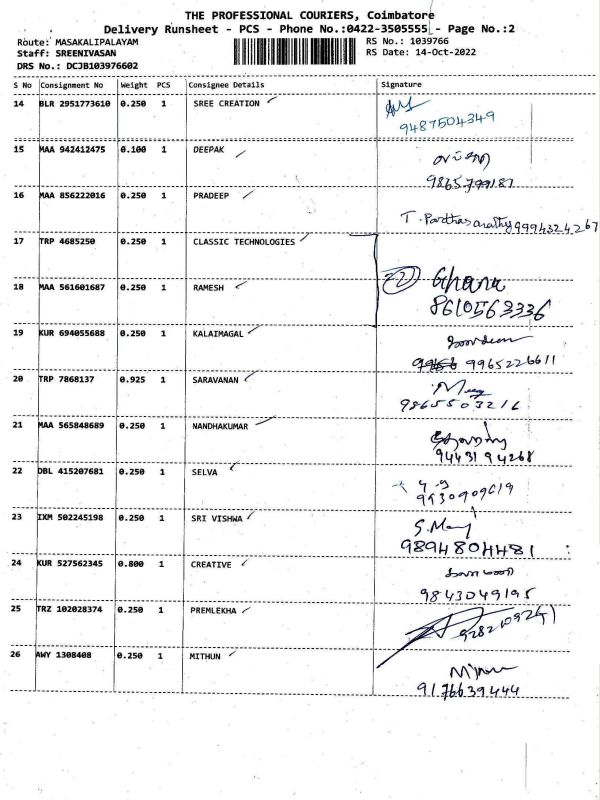 THE PROFESSIONAL COURIERS, Coimbatore
Delivery Runsheet - PCS - Phone No.:0422-3505555 - Page No.:2
Route: MASAKALIPALAYAM
RS No.: 1039766
Staff: SREENIVASAN
RS Date: 14-Oct-2022
DRS No.: DCJB103976602
S No Consignment No Weight PCS Consignee Details Signature
14 BLR 2951773610 0.250 1 SREE CREATION
9487504349
15 MAA 942412475 0.100 1 DEEPAK
16 MAA 856222016 0.250 1 PRADEEP
T. Parthasarathy 9994324267
17 TRP 4685250 0.250 1 CLASSIC TECHNOLOGIES
18 MAA 561601687 0.250 1 RAMESH
Ghana
8610563336
19 KUR 694055688 0.250 1 KALAIMAGAL
9965226611
20 TRP 7868137 0.925 1 SARAVANAN
9865503216
21 MAA 565848689 0.250 1 NANDHAKUMAR
9443194268
22 DBL 415207681 0.250 1 SELVA
9930909019
23 IXM 502245198 0.250 1 SRI VISHWA
9894804481
24 KUR 527562345 0.800 1 CREATIVE
9843049195
25 TRZ 102028374 0.250 1 PREMLEKHA
26 AWY 1308408 0.250 1 MITHUN
9176639444